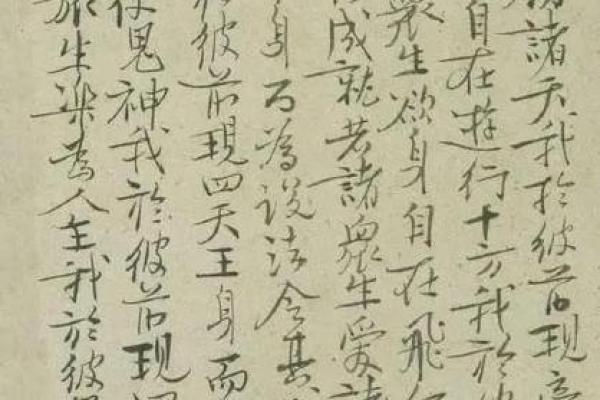 諸天我於彼前現帝
自在遊行十方我於彼
眾生欲身自在飛行
成就若諸眾生愛
身而為說法令其
於彼前現四天王身而
使鬼神我於彼前現四
眾生樂為人主我於彼